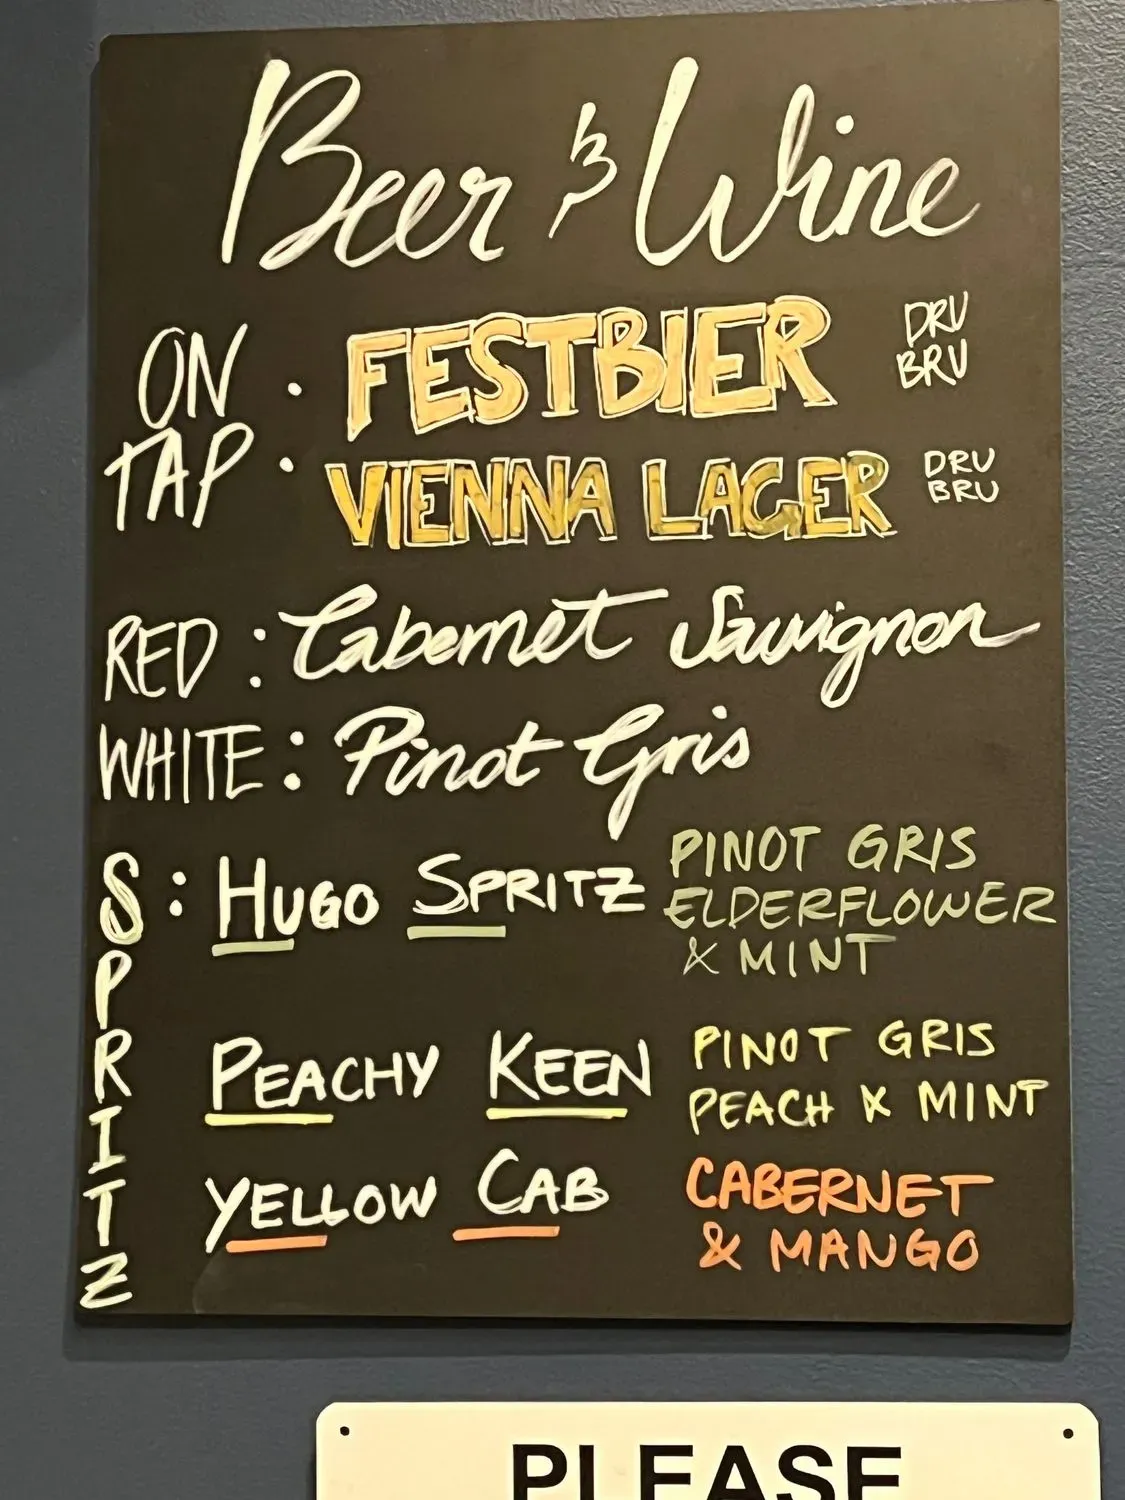 Beer & Wine
ON TAP : FESTBIER DRU BRU
VIENNA LAGER DRU BRU
RED : Cabernet Sauvignon
WHITE : Pinot Gris
SPRITZ : HUGO SPRITZ PINOT GRIS
ELDERFLOWER
& MINT
PEACHY KEEN PINOT GRIS
PEACH & MINT
YELLOW CAB CABERNET
& MANGO
PLEASE